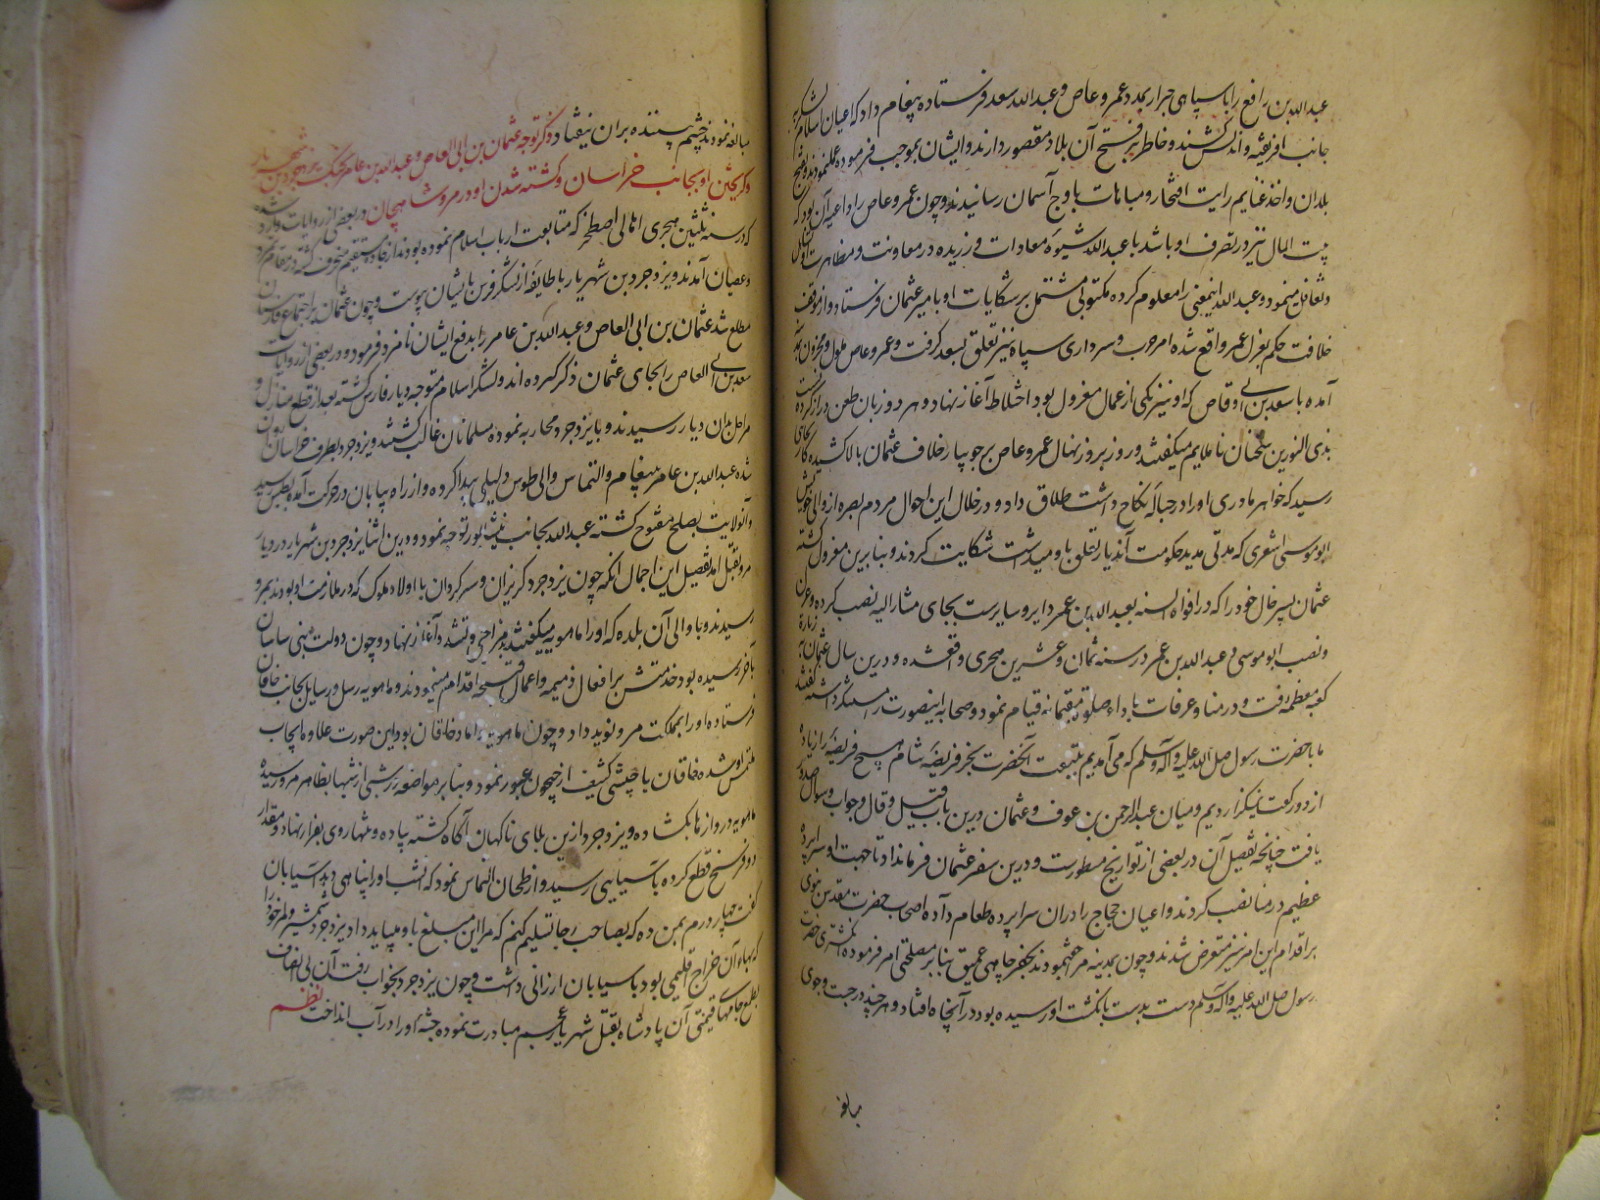 عبدالله بن رافع را با سپاهی جرار بمدد عمرو عاص و عبدالله سعد فرستاده پیغام داد که اعیان لشکر اسلام
جانب افریقیه و اندلس کشند و خاطر بر فتح آن بلاد مقصور دارند و ایشان بموجب فرموده عمل نمودند و بفتح
بلدان و اخذ غنایم رایت افتخار و مباهات باوج آسمان رسانیدند و چون عمرو عاص را داعیه آن بود که
بیت المال نیز در تصرف او باشد با عبدالله شیوه معادات ورزیده در معاونت و مظاهرت
و تغافل مینمود و عبدالله اینمعنی را معلوم کرده مکتوبی مشتمل بر شکایات او بامیر عثمان فرستاد و از موقف
خلافت حکم بعزل عمرو واقع شده امر حرب و سرداری سپاه نیز تعلق بسعد گرفت و عمرو عاص ملول و محزون
آمده با سعد بن ابی وقاص که او نیز یکی از عمال معزول بود اختلاط آغاز نهاد و هر دو زبان طعن دراز کرده
ذی النورین سخنان ناملایم میگفتند و روز بروز نهال عمرو عاص بر جویبار خلاف عثمان بالا کشیده کار بجای
رسید که خواهر مادری او را در حباله نکاح داشت طلاق داد و در خلال این احوال مردم بصره از والی خویش
ابو موسی اشعری که مدتی مدید حکومت آندیار تعلق باو میداشت شکایت کردند و بنابرین معزول گشته
عثمان پسر خال خود را که در افواه السنه بعبدالله بن عمر دایر و سایرست بجای مشارالیه نصب کرده و عزل
و نصب ابو موسی و عبدالله بن عمر در سنه ثمان و عشرین هجری واقعشده و درین سال عثمان بزیارة
کعبه معظمه رفت و در منا و عرفات باداء صلوة مقیمانه قیام نمود و صحابه اینصورت را مستنکر داشته گفتند
ما با حضرت رسول صلی الله علیه و آله و سلم که می آمدیم بمتبعت آنحضرت بجز فریضه شام هیچ فریضه را زیاده
از دو رکعت نمیگزاردیم و میان عبدالرحمن بن عوف و عثمان درین باب قیل و قال و جواب و سوال صدور
یافت چنانچه تفصیل آن در بعضی از تواریخ مسطورست و درین سفر عثمان فرمان داد تا جهت او سراپرده
عظیم در منا نصب کردند و اعیان حجاج را در آن سراپرده طعام داده اصحاب حضرت مقدس نبوی
بر اقدام این امر نیز متعرض شدند و چون بمدینه مراجعت نمودند بحفر چاهی عمیق بنابر مصلحتی امر فرموده انگشتری حضرت
رسول صلی الله علیه و آله و سلم دست بدست بانگشت او رسیده بود در آنچاه افتاد و هر چند در جست و جوی
مبالغه
مبالغه نمودند چشم بیننده بران نیفتاد ذکر توجه عثمان بن ابی العاص و عبدالله بن عامر بجنگ یزدجرد بن شهریار
و گریختن او بجانب خراسان و کشته شدن او در مرو شاهیجان در بعضی از روایات وارد شده
که در سنه ثلثین هجری اهالی اصطخر که متابعت ارباب اسلام نموده بودند از جاده مستقیم منحرف گشته در مقام تمرد
و عصیان آمدند و یزدجرد بن شهریار با طایفه از لشکر فرس بایشان پیوست و چون عثمان بر اجتماع فارسیان
مطلع شد عثمان بن ابی العاص و عبدالله بن عامر را بدفع ایشان نامزد فرمود و در بعضی از روایات
سعد بن ابی العاص را بجای عثمان ذکر کرده اند و لشکر اسلام متوجه دیار فارس گشته بعد از قطع منازل و
مراحل بدان دیار رسیدند و با یزدجرد محاربه نموده مسلمانان غالب گشتند و یزدجرد بطرف خراسان
شده عبدالله بن عامر بپیغام و التماس والی طوس دلیلی پیدا کرده و از راه بیابان در حرکت آمده بطبس رسید
و آنولایت بصلح مفتوح گشته عبدالله بجانب نیشابور توجه نمود و درین اثنا یزدجرد بن شهریار در دیار
مرو بقتل آمد تفصیل این اجمال آنکه چون یزدجرد گریزان و سرگردان با اولاد ملوک که در ملازمت او بودند بمرو
رسیدند و با والی آن بلده که او را ماهویه میگفتند بدمزاجی و تشدد آغاز نهاد و چون دولت بنی ساسان
بآخر رسیده بود خدمتش بر افعال ذمیمه و اعمال قبیحه اقدام مینمودند و ماهویه رسل و رسایل بجانب خاقان
فرستاده او را بمملکت مرو نوید داد و چون ماهویه داماد خاقان بود این صورت علاوه ایجاب
ملتمس او شده خاقان با جیشی کثیف از جیحون عبور نمود و بنابر مواضعه در شبی از شبها بظاهر مرو رسیده
ماهویه دروازها بگشاده و یزدجرد ازین بلای ناگهان آگاه گشته پیاده و تنها روی بفرار نهاد و مقدار
دو فرسخ قطع کرده بآسیایی رسید و از طحان التماس نمود که امشب او را پناهی دهد آسیابان
گفت چهار درم بمن ده که بصاحب رحا تسلیم کنم که مرا این مبلغ باو میباید داد یزدجرد شمشیر و کمر خود را
که بهاء آن خراج اقلیمی بود بآسیابان ارزانی داشت و چون یزدجرد بخواب رفت آن بی انصاف
بطمع جامهای قیمتی آن پادشاه بقتل شهریار عجم مبادرت نموده جثه او را در آب انداخت نظم